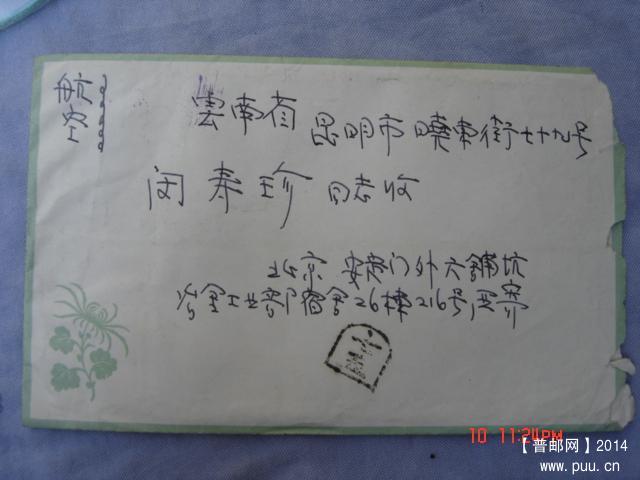 航空
雲南省 昆明市 曉東街七十九号
闵寿珍 同志收
北京 安定门外六鋪坑
冶金工业部宿舍26棟216号周寄
10 11:24PM
【普邮网】2014
www.puu.cn